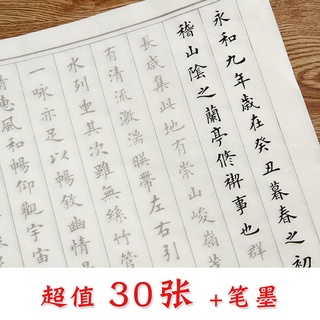 永和九年歲在癸丑暮春之初
稽山陰之蘭亭修禊事也群
長咸集此地有崇山峻嶺
有清流激湍暎帶左右引
水列坐其次雖無絲竹管
一詠亦足以暢敘幽情
清惠風和暢仰觀宇宙
超值 30张 +笔墨